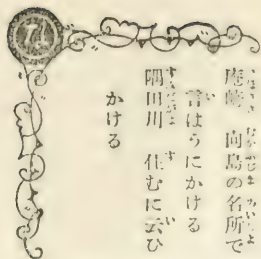 庵崎 向島の名所で
言はうにかける
隅田川 住むに云ひ
かける